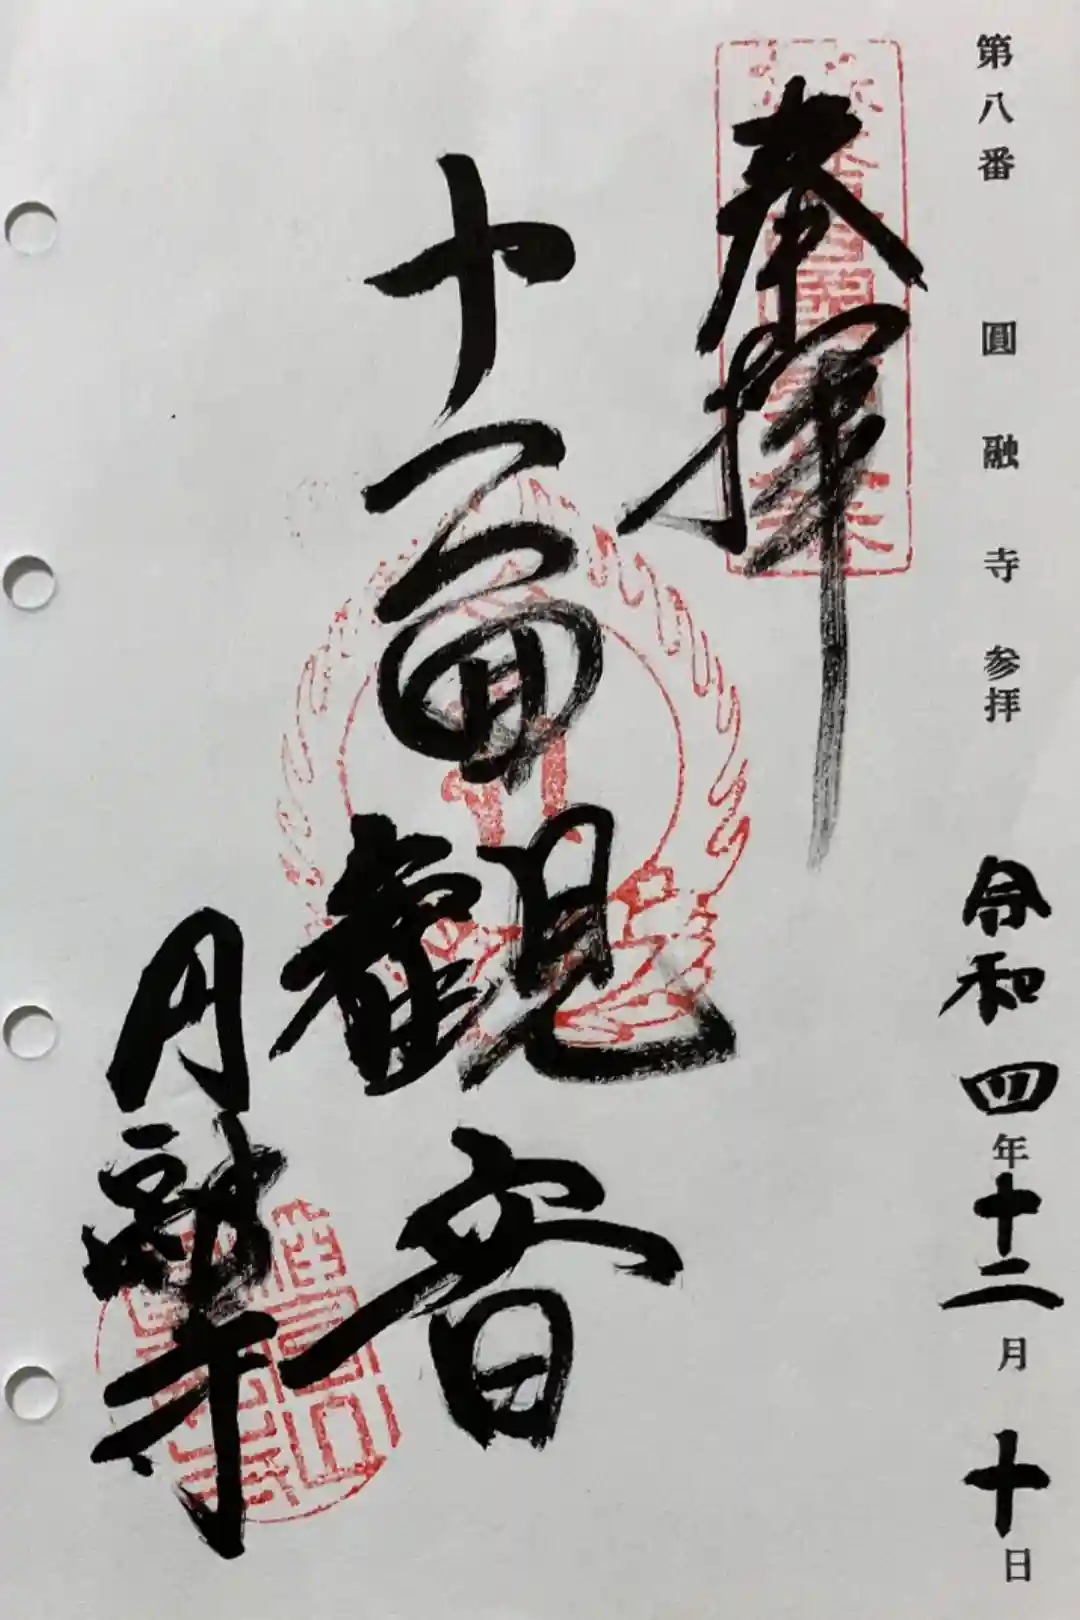 第八番 圓融寺参拝 令和四年十二月十日
奉拝
十一面観音
円融寺